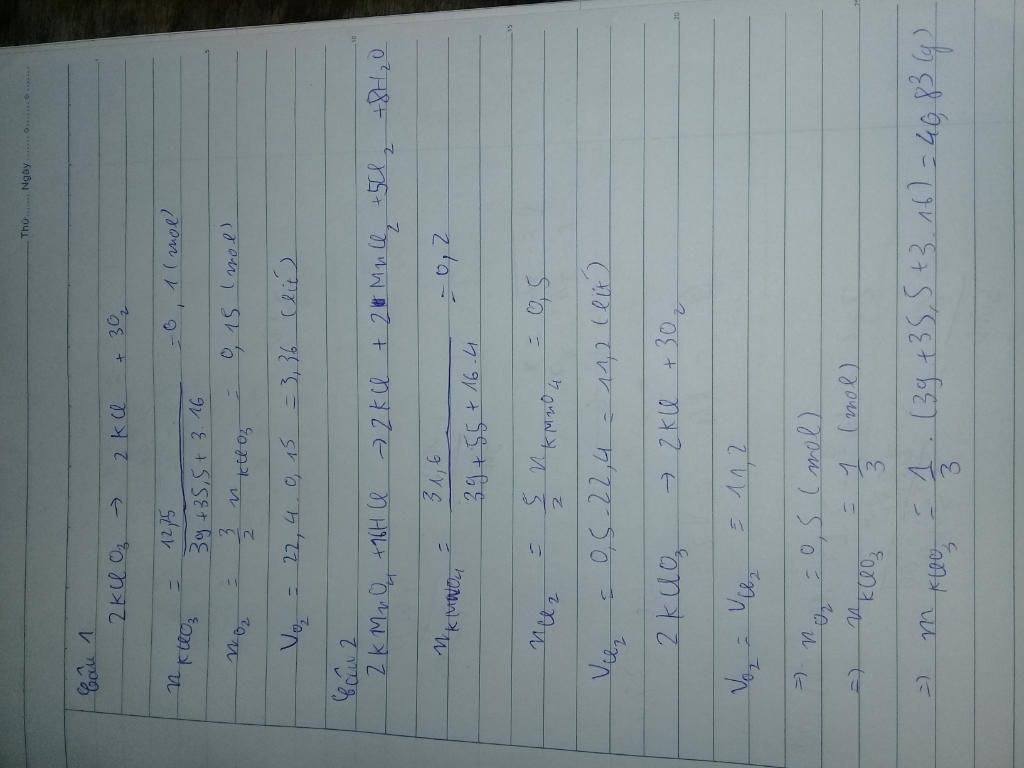 Thứ....... Ngày.........o.........o.........
Câu 1
2KClO3 → 2KCl + 3O2
nKClO3 = 12,25 / (39+35,5+3.16) = 0,1 (mol)
nO2 = 3/2 nKClO3 = 0,15 (mol)
VO2 = 22,4.0,15 = 3,36 (lít)
Câu 2
2KMnO4 +16HCl → 2KCl + 2MnCl2 +5Cl2 +8H2O
nKMnO4 = 31,6 / (39+55+16.4) = 0,2
nCl2 = 5/2 nKMnO4 = 0,5
VCl2 = 0,5.22,4 = 11,2 (lít)
2KClO3 → 2KCl +3O2
VO2 = VCl2 = 11,2
=> nO2 = 0,5 (mol)
=> nKClO3 = 1/3 (mol)
=> mKClO3 = 1/3 . (39+35,5+3.16) = 40,83 (g)
5
10
15
20
25